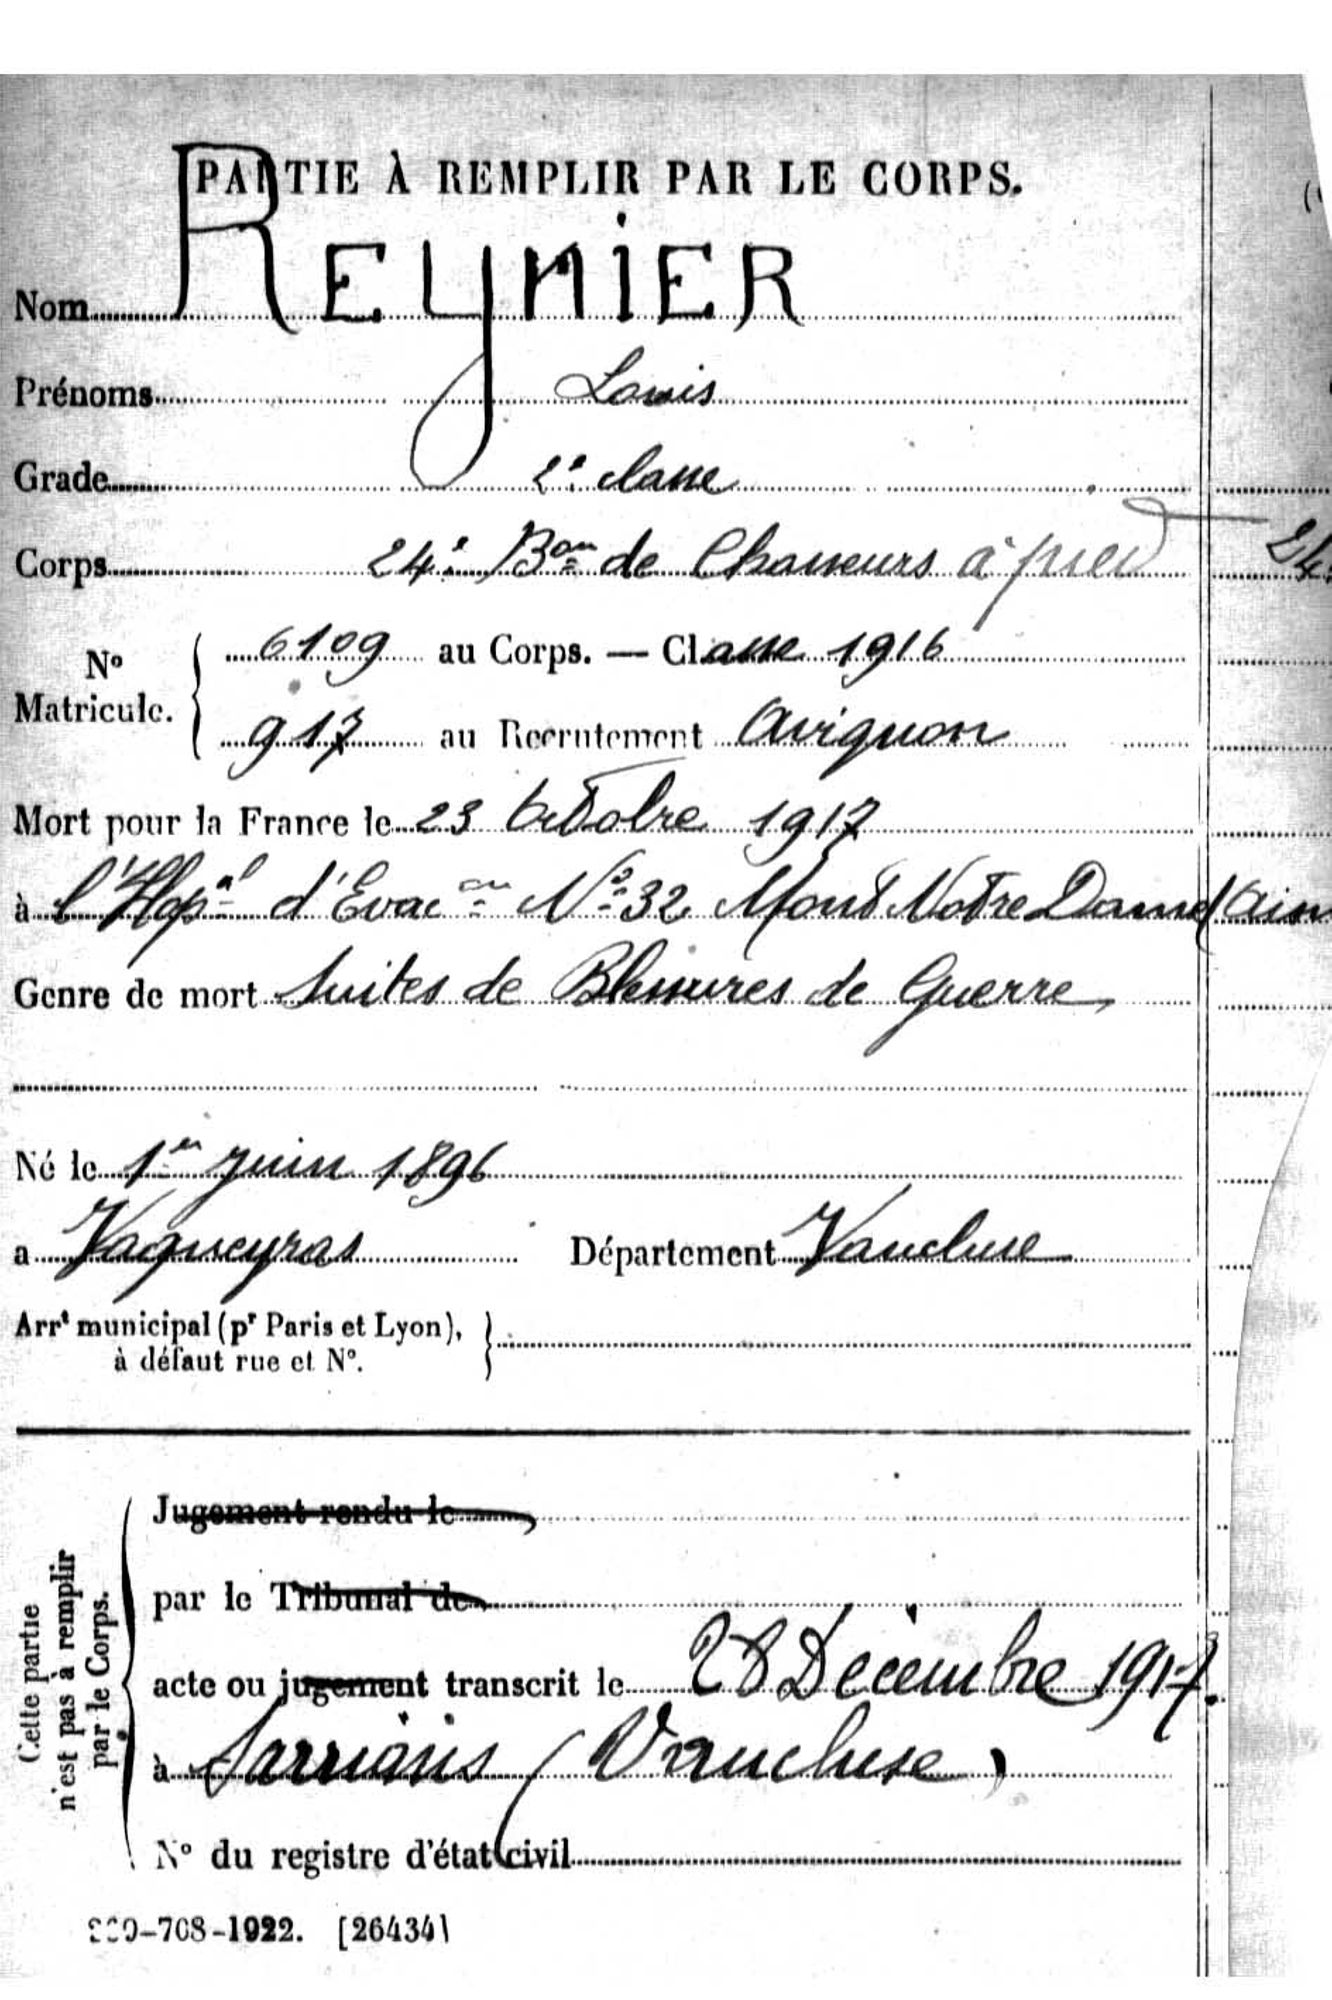 PARTIE À REMPLIR PAR LE CORPS.
Nom REYNIER
Prénoms Louis
Grade 2e classe
Corps 24e Bon de Chasseurs à pied
24
N° Matricule. 6109 au Corps. — Classe 1916
917 au Recrutement Avignon
Mort pour la France le 23 Octobre 1917
à l'Hopal d'Evacon N° 32 Mont Notre Dame
Genre de mort Suites de Blessures de Guerre
Né le 1er Juin 1896
à Vaqueyras Département Vaucluse
Arrt municipal (pr Paris et Lyon),
à défaut rue et N°.
Cette partie
n'est pas à remplir
par le Corps.
Jugement rendu le
par le Tribunal de
acte ou jugement transcrit le 28 Décembre 1917.
à Sarrians (Vaucluse)
N° du registre d'état civil
-708-1922. [26434]